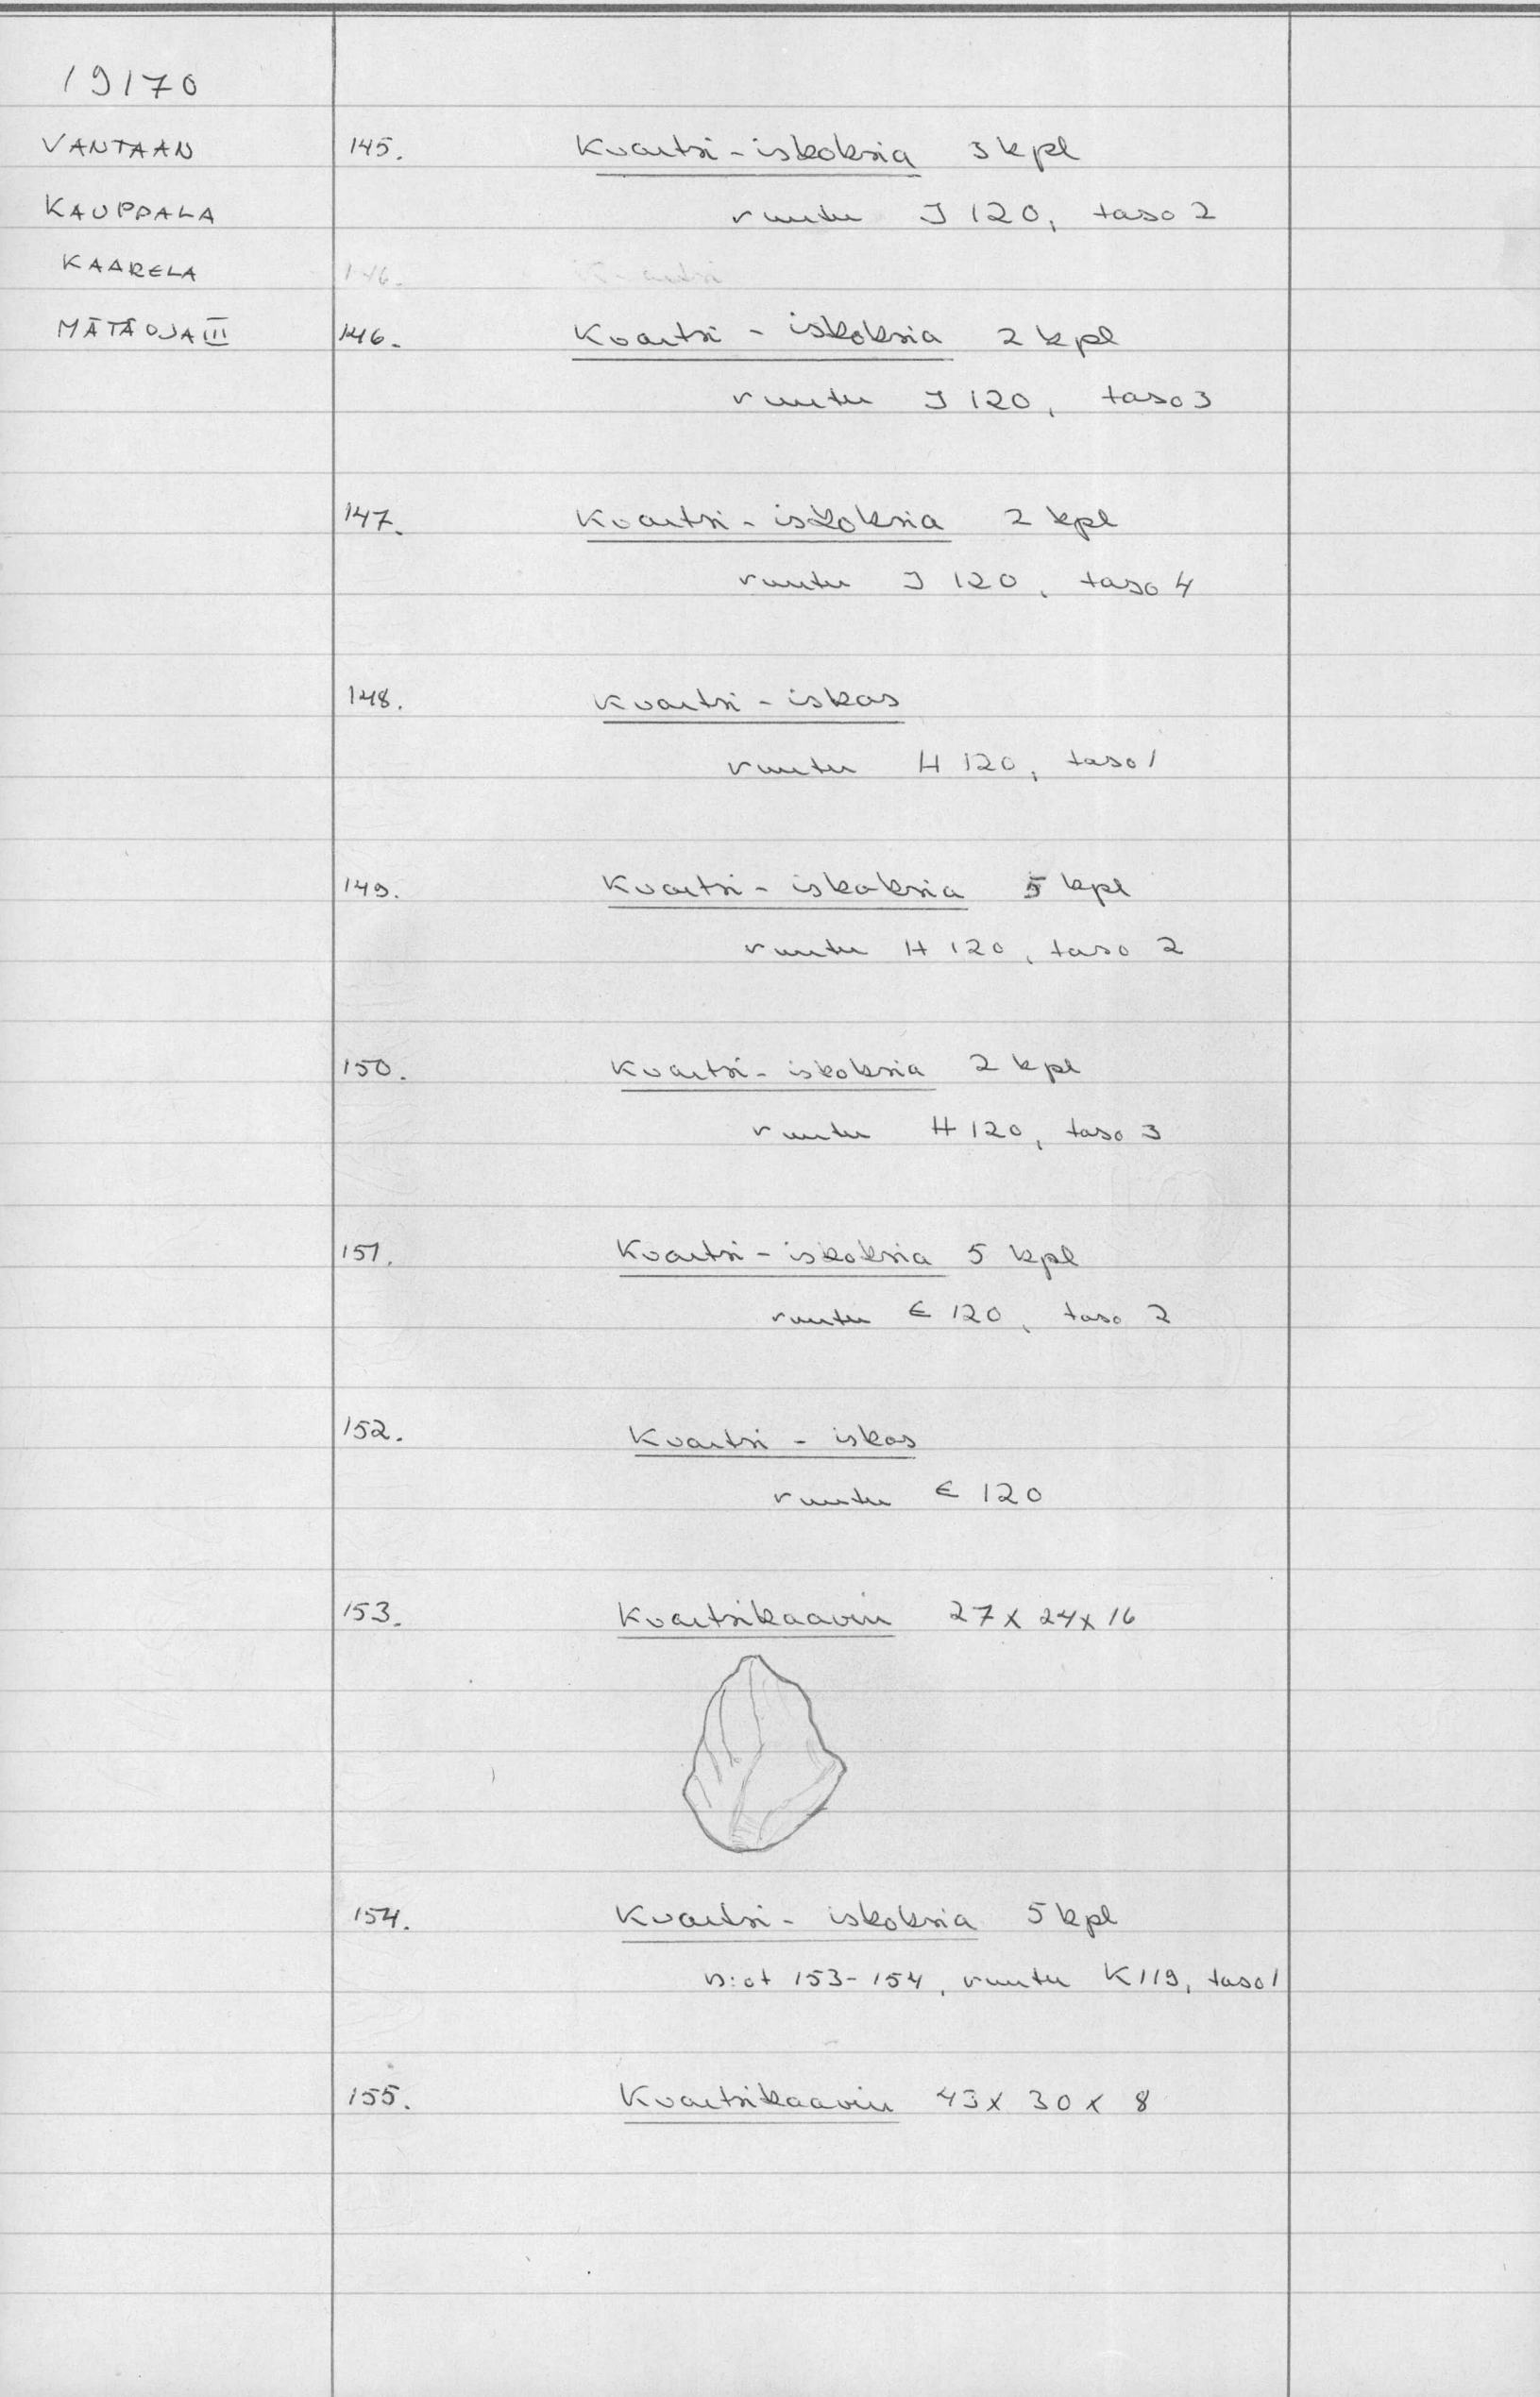 19170
VANTAAN
KAUPPALA
KAARELA
MÄTÄOJA III
145. Kvartsi-iskoksia 3 kpl
ruutu J 120, taso 2
146. Kvartsi
146. Kvartsi - iskoksia 2 kpl
ruutu J 120, taso 3
147. Kvartsi - iskoksia 2 kpl
ruutu J 120, taso 4
148. Kvartsi - iskos
ruutu H 120, taso 1
149. Kvartsi - iskoksia 5 kpl
ruutu H 120, taso 2
150. Kvartsi - iskoksia 2 kpl
ruutu H 120, taso 3
151. Kvartsi - iskoksia 5 kpl
ruutu E 120, taso 2
152. Kvartsi - iskos
ruutu E 120
153. Kvartsikaavin 27 x 24 x 16
154. Kvartsi - iskoksia 5 kpl
n:ot 153-154, ruutu K 119, taso 1
155. Kvartsikaavin 43 x 30 x 8